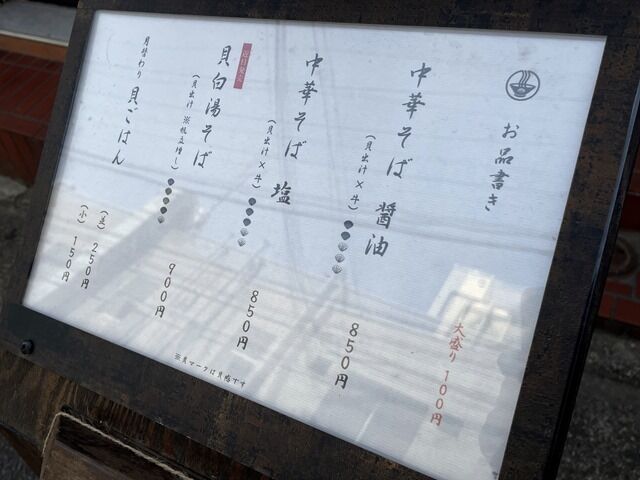 お品書き
大盛り 100円
中華そば 醤油
(貝出汁×牛)
850円
中華そば 塩
(貝出汁×牛)
850円
貝白湯そば
(貝出汁 ※帆立増し)
900円
貝ごはん
(並) 250円
(小) 150円
※貝マークは貝感です